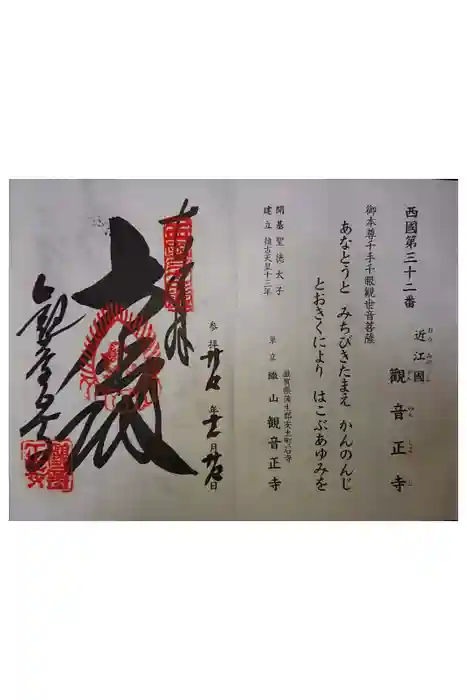 西國第三十二番
近江國 觀音正寺
おうみのくに
かんのんしょうじ
御本尊千手千眼観世音菩薩
あなとうと みちびきたまえ かんのんじ
とおきくにより はこぶあゆみを
開基聖徳太子
建立 推古天皇十三年
滋賀県蒲生郡安土町石寺
單立 繖山 觀音正寺
参拝 年 月 日
大悲殿
観音正寺